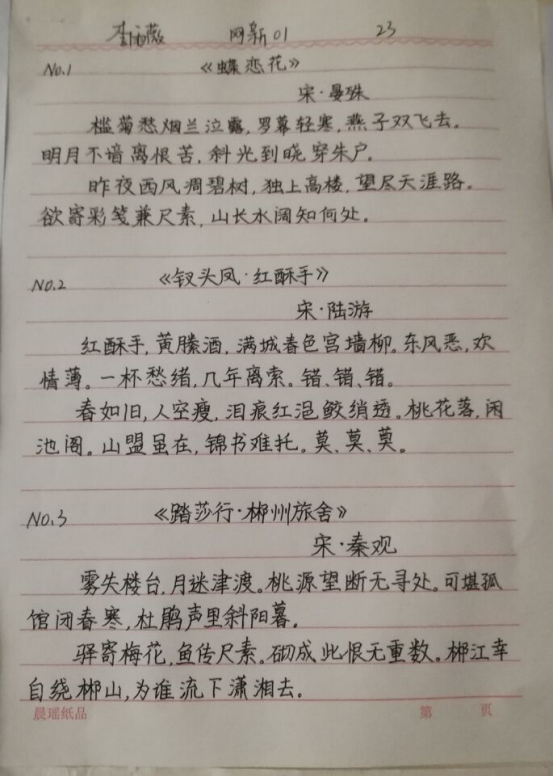 李 薇 网新01 23
No.1 《蝶恋花》
宋·晏殊
槛菊愁烟兰泣露,罗幕轻寒,燕子双飞去。
明月不谙离恨苦,斜光到晓穿朱户。
昨夜西风凋碧树,独上高楼,望尽天涯路。
欲寄彩笺兼尺素,山长水阔知何处。
No.2 《钗头凤·红酥手》
宋·陆游
红酥手,黄縢酒,满城春色宫墙柳。东风恶,欢
情薄。一杯愁绪,几年离索。错、错、错。
春如旧,人空瘦,泪痕红浥鲛绡透。桃花落,闲
池阁。山盟虽在,锦书难托。莫、莫、莫。
No.3 《踏莎行·郴州旅舍》
宋·秦观
雾失楼台,月迷津渡。桃源望断无寻处。可堪孤
馆闭春寒,杜鹃声里斜阳暮。
驿寄梅花,鱼传尺素。砌成此恨无重数。郴江幸
自绕郴山,为谁流下潇湘去。
晨瑶纸品 第 页